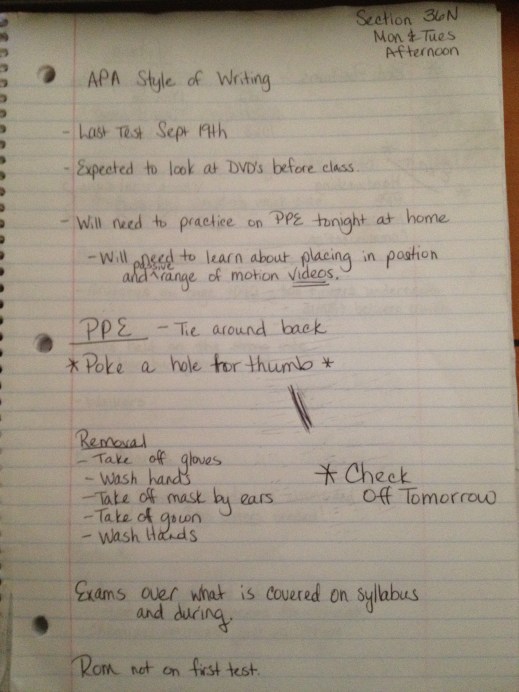 Section 36N
Mon & Tues
Afternoon
APA Style of Writing
- Last Test Sept 19th
- Expected to look at DVD's before class.
- Will need to practice on PPE tonight at home
- Will need to learn about placing in postion
and passive range of motion videos.
PPE - Tie around back
* Poke a hole for thumb *
Removal
- Take off gloves
- Wash hands
- Take off mask by ears
- Take of gown
- Wash Hands
* Check
Off Tomorrow
Exams over what is covered on syllabus
and during.
Rom not on first test.